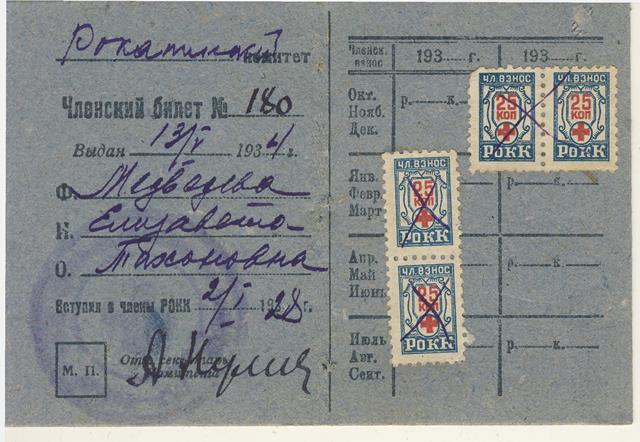 комитет
Членский билет № 180
Выдан 13/V 1934 г.
Ф. Медведева
И. Елизавета
О. Тихоновна
Вступил в члены РОКК 2/I 1928 г.
М. П.
Отв. секретарь
комитета
Членск. взнос 193 г. 193 г.
Окт.
Нояб.
Дек.
р. к.
Янв.
Февр.
Март
р. к.
Апр.
Май
Июнь
р. к.
Июль
Авг.
Сент.
р. к.
ЧЛ. ВЗНОС
25
КОП
РОКК
ЧЛ. ВЗНОС
25
КОП
РОКК
ЧЛ. ВЗНОС
25
КОП
РОКК
ЧЛ. ВЗНОС
25
КОП
РОКК